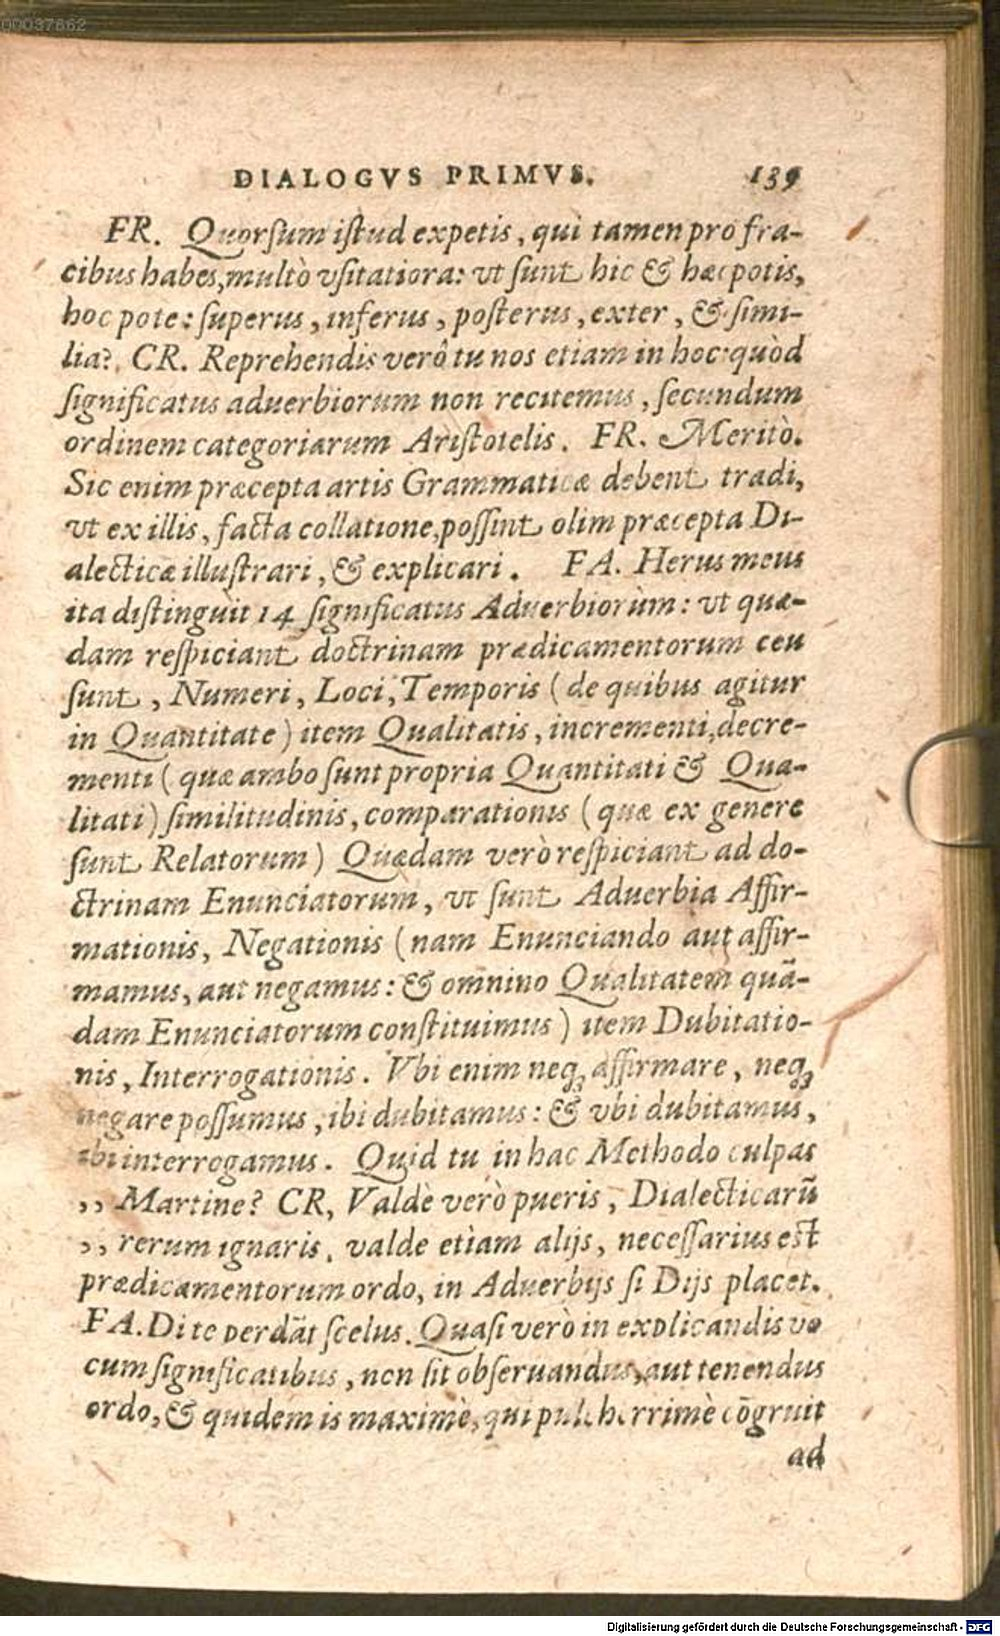 00037862
DIALOGVS PRIMVS. 139
FR. Quorſum iſtud expetis, qui tamen pro fra-
cibus habes, multò vſitatiora: vt ſunt hic & hæc potis,
hoc pote: ſuperus, inferus, poſterus, exter, & ſimi-
lia? CR. Reprehendis verò tu nos etiam in hoc: quòd
ſignificatus aduerbiorum non recitemus, ſecundum
ordinem categoriarum Ariſtotelis. FR. Meritò.
Sic enim præcepta artis Grammaticæ debent tradi,
vt ex illis, facta collatione, poſſint olim præcepta Di-
alecticæ illuſtrari, & explicari. FA. Herus meus
ita diſtinguit 14 ſignificatus Aduerbiorum: vt quæ-
dam reſpiciant doctrinam prædicamentorum ceu
ſunt, Numeri, Loci, Temporis (de quibus agitur
in Quantitate) item Qualitatis, incrementi, decre-
menti (quæ ambo ſunt propria Quantitati & Qua-
litati) ſimilitudinis, comparationis (quæ ex genere
ſunt Relatorum) Quædam verò reſpiciant ad do-
ctrinam Enunciatorum, vt ſunt Aduerbia Affir-
mationis, Negationis (nam Enunciando aut affir-
mamus, aut negamus: & omnino Qualitatem quã-
dam Enunciatorum conſtituimus) item Dubitatio-
nis, Interrogationis. Vbi enim neq; affirmare, neq;
negare poſſumus, ibi dubitamus: & vbi dubitamus,
ibi interrogamus. Quid tu in hac Methodo culpas
,, Martine? CR, Valdè verò pueris, Dialecticarũ
,, rerum ignaris, valde etiam alijs, neceſſarius est
prædicamentorum ordo, in Aduerbijs ſi Dijs placet.
FA. Di te perdãt ſcelus. Quaſi verò in explicandis vo
cum ſignificatibus, non ſit obſeruandus, aut tenendus
ordo, & quidem is maximè, qui pulcherrimè cõgruit
ad
Digitalisierung gefördert durch die Deutsche Forschungsgemeinschaft - DFG